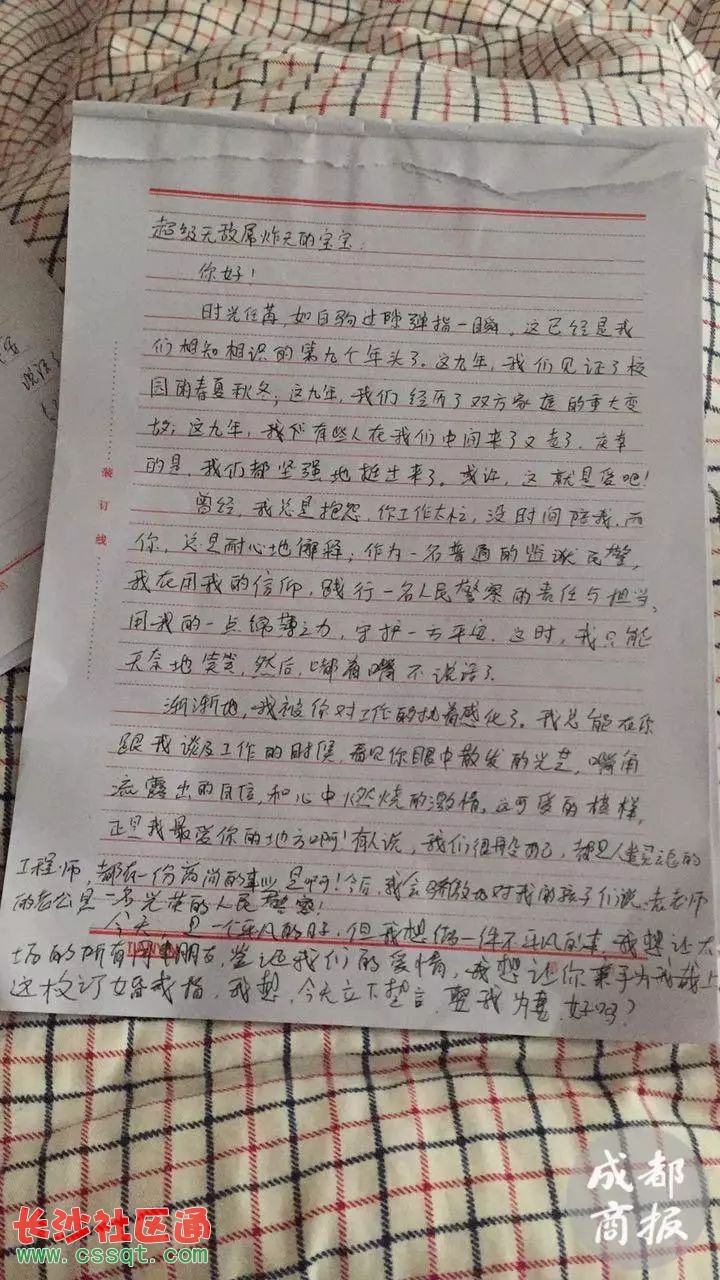 超级无敌屌炸天的宝宝:
你好!
时光荏苒,如白驹过隙弹指一瞬,这已经是我
们相知相识的第九个年头了。这九年,我们见证了校
园的春夏秋冬;这九年,我们经历了双方家庭的重大变
故;这九年,我们有些人在我们中间来了又走了,庆幸
的是,我们都坚强地挺过来了。或许,这就是爱吧!
曾经,我总是抱怨,你工作太忙,没时间陪我,而
你,总是耐心地解释:作为一名普通的监狱民警,
我在用我的信仰,践行一名人民警察的责任与担当,
用我的一点绵薄之力,守护一方平安。这时,我只能
无奈地笑笑,然后,嘟着嘴不说话了。
渐渐地,我被你对工作的执着感化了。我总能在你
跟我谈及工作的时候,看见你眼中散发的光芒,嘴角
流露出的自信,和心中燃烧的激情。这可爱的模样,
正是我最爱你的地方啊!有人说,我们很般配,都是人类灵魂的
工程师,都在一份高尚的事业,是啊!今后,我会骄傲地对我的孩子们说:袁老师
的老公是一名光荣的人民警察!
今天,是一个平凡的日子,但我想做一件不平凡的事,我想让在
场的所有 朋友,鉴证我们的爱情,我想让你亲手为我戴上
这枚订婚戒指,我想,今天立下誓言,娶我为妻,好吗?
装
订
线
说话了
成都
商报
长沙社区通
www.cssqt.com